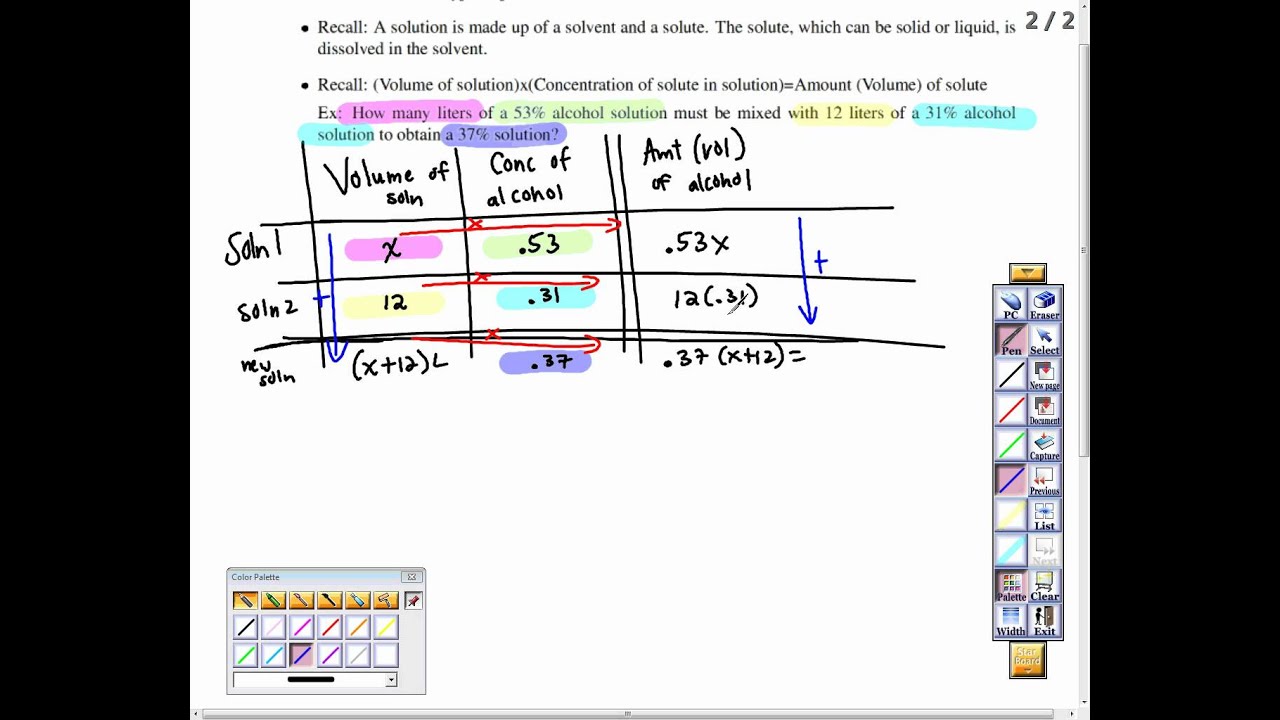 2 / 2
• Recall: A solution is made up of a solvent and a solute. The solute, which can be solid or liquid, is
dissolved in the solvent.
• Recall: (Volume of solution)x(Concentration of solute in solution)=Amount (Volume) of solute
Ex: How many liters of a 53% alcohol solution must be mixed with 12 liters of a 31% alcohol
solution to obtain a 37% solution?
Volume of soln
Conc of alcohol
Amt (vol) of alcohol
Soln 1 x × .53 .53x
soln 2 12 × .31 12(.31)
new soln (x+12)L × .37 .37 (x+12) =
+
+
PC Eraser
Pen Select
New page
Document
Capture
Previous
List
Next
Palette Clear
Width Exit
Star Board
Color Palette